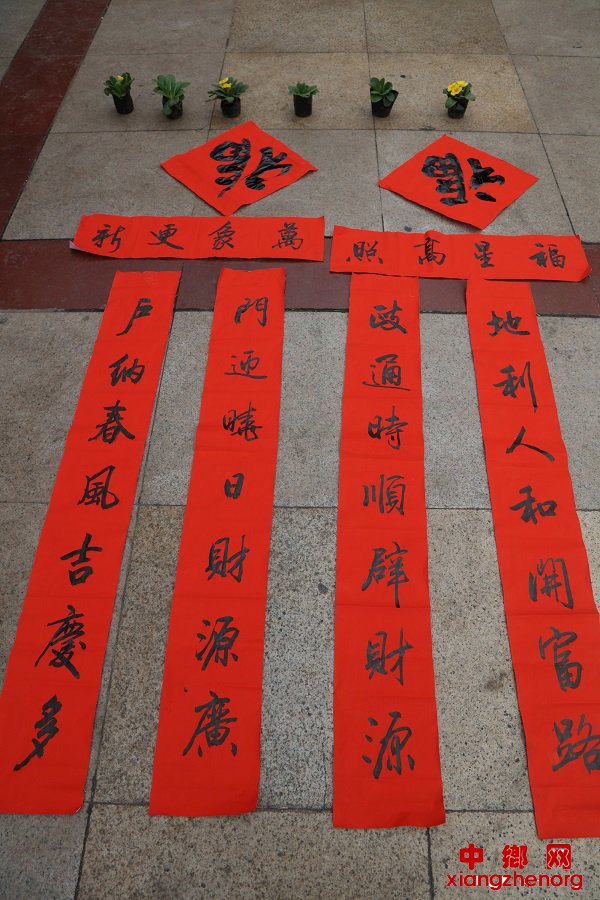 福
福
萬象更新
福星高照
戶納春風吉慶多
門迎曉日財源廣
政通時順辟財源
地利人和開富路
中鄉网
xiangzhenorg